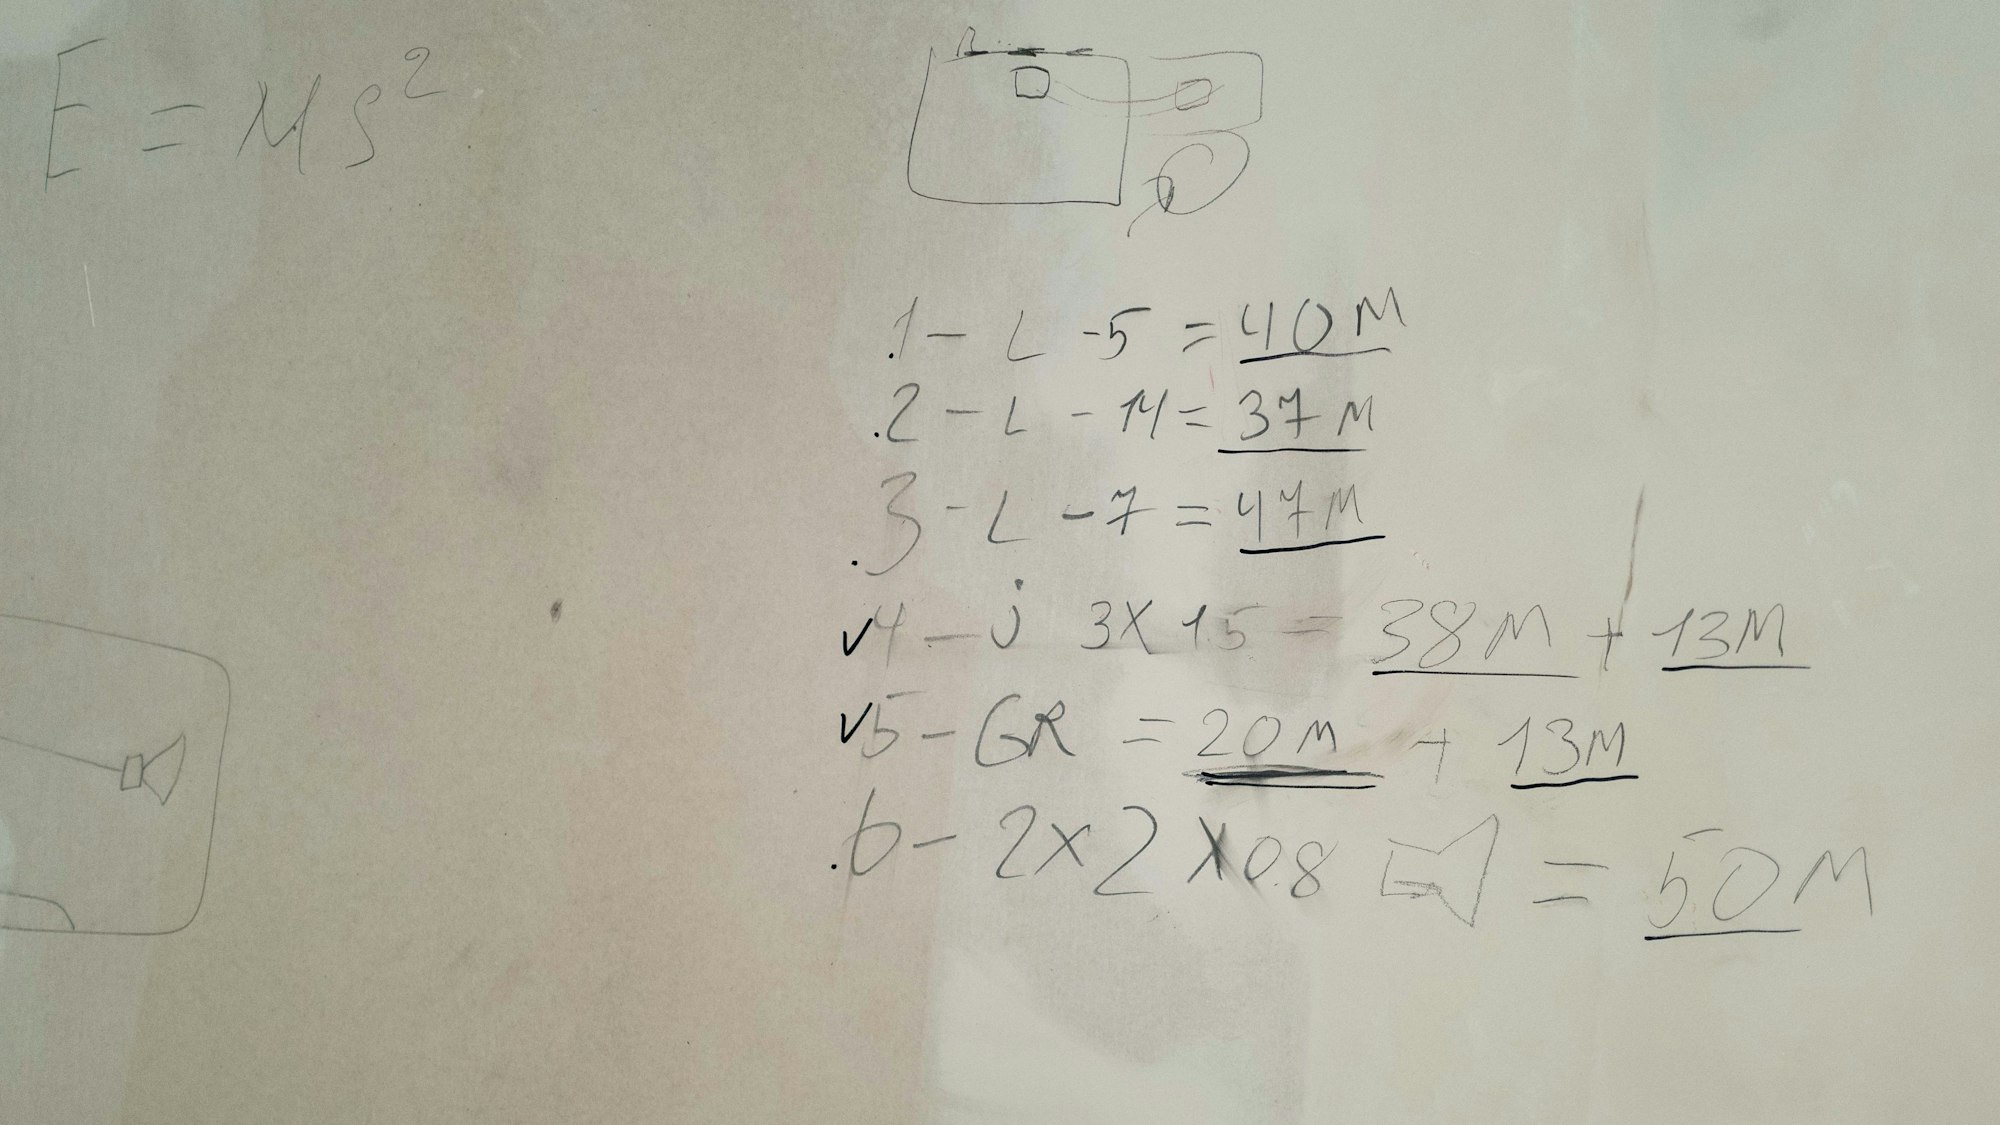 E = MS²
.1 - L - 5 = 40M
.2 - L - 14 = 37M
.3 - L - 7 = 47M
√4 - j 3X1.5 = 38M + 13M
√5 - GR = 20M + 13M
.6 - 2X2X0.8 = 50M